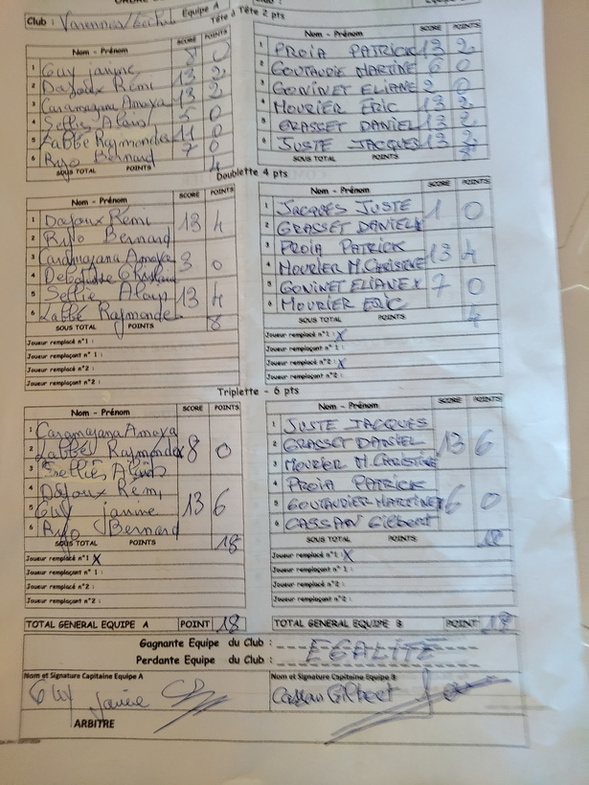 Club : Varennes/ Equipe A
Club :
Tête à Tête 2 pts
Nom - Prénom SCORE POINTS
1 Guy janine 8 0
2 Dajoux Rémi 13 2
3 Caramagana Amaya 13 2
4 Selliés Alain 5 0
5 Labbé Raymonde 11 0
6 Ryo Bernard 7 0
SOUS TOTAL POINTS 4
1 PROIA PATRICK 13 2
2 GOUTAUDIE MARTINE 6 0
3 GONINET ELIANE 2 0
4 MOURIER ERIC 13 2
5 GRASSET DANIEL 13 2
6 JUSTE JACQUES 13 2
SOUS TOTAL POINTS 8
Doublette 4 pts
Nom - Prénom SCORE POINTS
1 Dajoux Rémi 13 4
2 Ryo Bernard
3 Caramagana Amaya 3 0
4
5 Sellié Alain 13 4
6 Labbé Raymonde
SOUS TOTAL POINTS 8
Joueur remplacé n°1 :
Joueur remplaçant n° 1 :
Joueur remplacé n°2 :
Joueur remplaçant n°2 :
Nom - Prénom SCORE POINTS
1 Jacques JUSTE 1 0
2 GRASSET DANIEL
3 PROIA PATRICK 13 4
4 MOURIER M.CHRISTINE
5 GONINET ELIANE X 7 0
6 MOURIER ERIC
SOUS TOTAL POINTS 4
Joueur remplacé n°1 : X
Joueur remplaçant n°1 :
Joueur remplacé n°2 : X
Joueur remplaçant n°2 :
Triplette - 6 pts
Nom - Prénom SCORE POINTS
1 Caramagana Amaya
2 Labbé Raymonde X 8 0
3 Selliés Alain
4 Dajoux Rémi
5 Guy janine 13 6
6 Ryo Bernard
SOUS TOTAL POINTS 18
Joueur remplacé n°1 X
Joueur remplaçant n° 1 :
Joueur remplacé n°2 :
Joueur remplaçant n°2 :
Nom - Prénom SCORE POINTS
1 JUSTE JACQUES
2 GRASSET DANIEL 13 6
3 MOURIER M.CHRISTINE
4 PROIA PATRICK
5 GOUTAUDIER MARTINE X 6 0
6 CASSAN Gilbert
SOUS TOTAL POINTS 18
Joueur remplacé n°1 : X
Joueur remplaçant n°1 :
Joueur remplacé n°2 :
Joueur remplaçant n°2 :
TOTAL GENERAL EQUIPE A POINT 18
TOTAL GENERAL EQUIPE B POINT 18
Gagnante Equipe du Club : EGALITE
Perdante Equipe du Club :
Nom et Signature Capitaine Equipe A
Guy Janine
Nom et Signature Capitaine Equipe B
Cassan Gilbert
ARBITRE